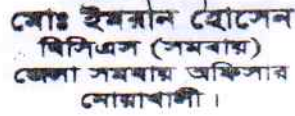 মোঃ ইমরান হোসেন
বিসিএস (সমবায়)
জেলা সমবায় অফিসার
নোয়াখালী।